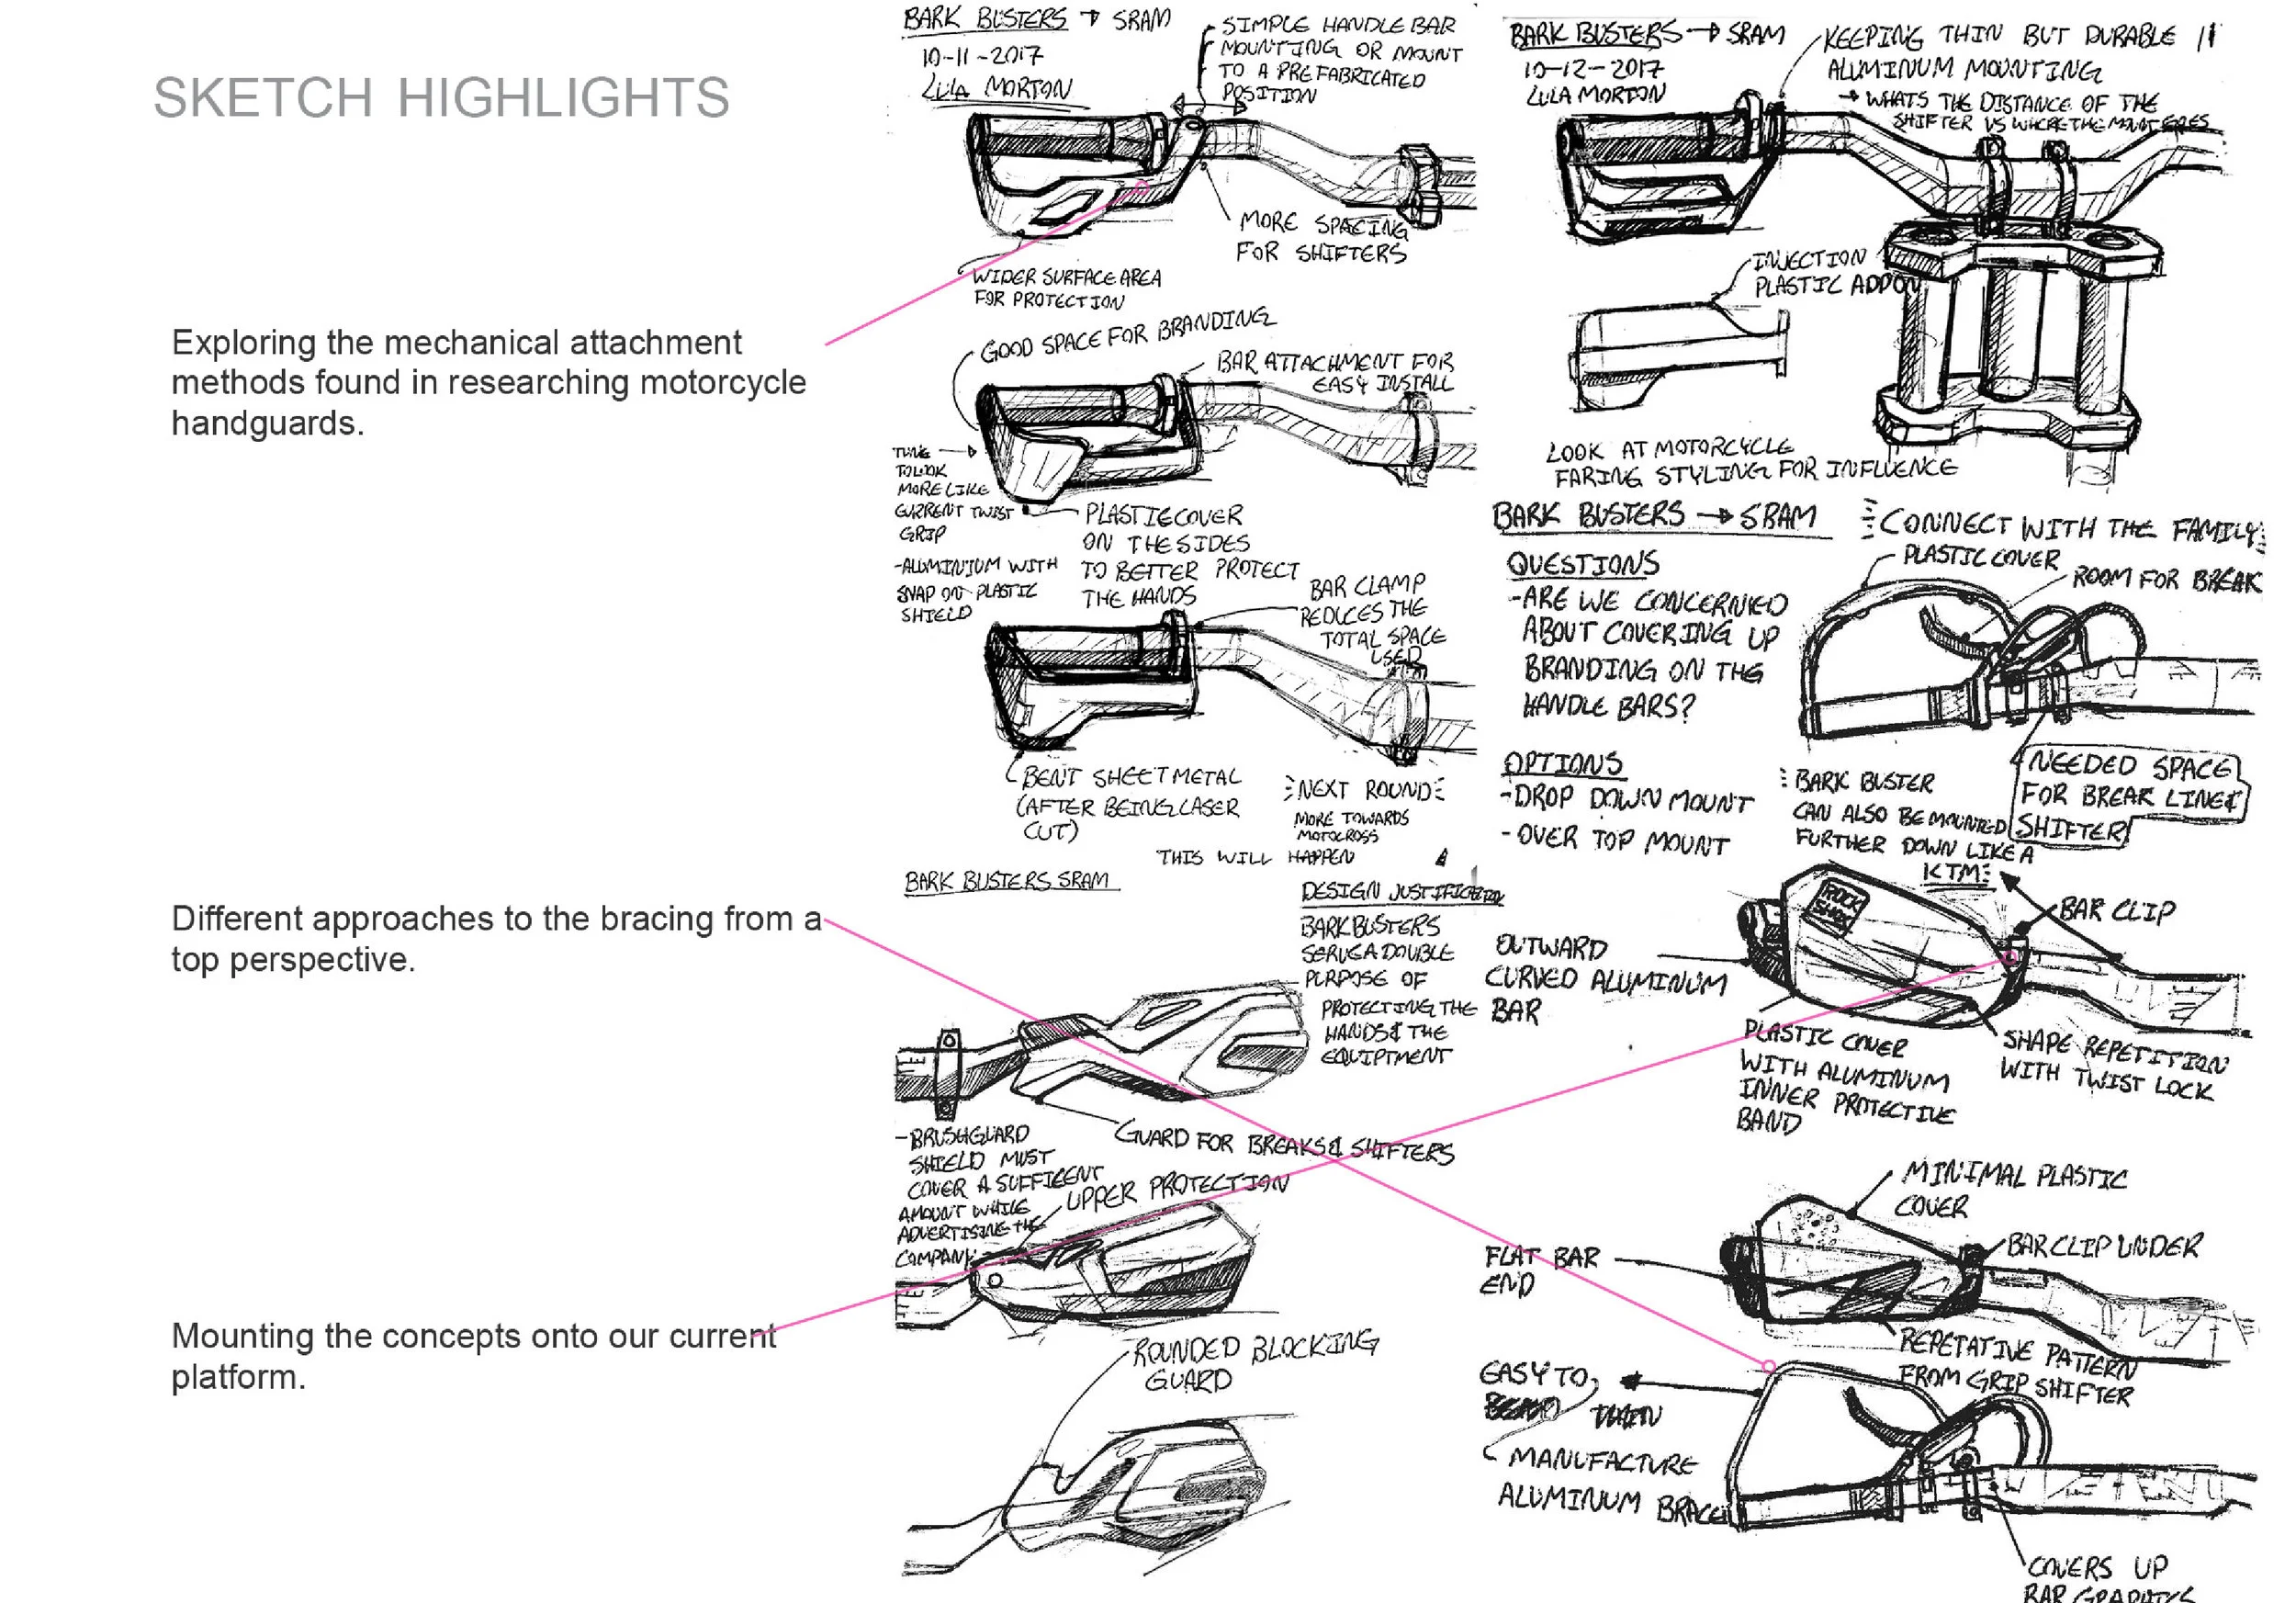 SKETCH HIGHLIGHTS
Exploring the mechanical attachment
methods found in researching motorcycle
handguards.
Different approaches to the bracing from a
top perspective.
Mounting the concepts onto our current
platform.
BARK BUSTERS → SRAM
10-11-2017
LULA MORTON
SIMPLE HANDLE BAR
MOUNTING OR MOUNT
TO A PREFABRICATED
POSITION
MORE SPACING
FOR SHIFTERS
WIDER SURFACE AREA
FOR PROTECTION
GOOD SPACE FOR BRANDING
BAR ATTACHMENT FOR
EASY INSTALL
TO LOOK
MORE LIKE
CURRENT TWIST
GRIP
-ALUMINIUM WITH
SNAP ON PLASTIC
SHIELD
PLASTIC COVER
ON THE SIDES
TO BETTER PROTECT
THE HANDS
BAR CLAMP
REDUCES THE
TOTAL SPACE
USED
BENT SHEET METAL
(AFTER BEING LASER
CUT)
NEXT ROUND
MORE TOWARDS
MOTOCROSS
THIS WILL HAPPEN
BARK BUSTERS SRAM
DESIGN JUSTIFICATION
BARKBUSTERS
SERVE A DOUBLE
PURPOSE OF
PROTECTING THE
HANDS & THE
EQUIPTMENT
GUARD FOR BREAKS & SHIFTERS
-BRUSHGUARD
SHIELD MUST
COVER A SUFFICENT
AMOUNT WHILE
ADVERTISING THE
COMPANY
UPPER PROTECTION
ROUNDED BLOCKING
GUARD
BARK BUSTERS → SRAM
10-12-2017
LULA MORTON
KEEPING THIN BUT DURABLE
ALUMINUM MOUNTING
→ WHATS THE DISTANCE OF THE
SHIFTER VS WHERE THE MOUNT GOES
INJECTION
PLASTIC ADDON
LOOK AT MOTORCYCLE
FARING STYLING FOR INFLUENCE
BARK BUSTERS → SRAM
CONNECT WITH THE FAMILY
QUESTIONS
-ARE WE CONCERNED
ABOUT COVERING UP
BRANDING ON THE
HANDLE BARS?
PLASTIC COVER
ROOM FOR BREAK
OPTIONS
-DROP DOWN MOUNT
-OVER TOP MOUNT
NEEDED SPACE
FOR BREAK LINE &
SHIFTER
BARK BUSTER
CAN ALSO BE MOUNTED
FURTHER DOWN LIKE A
KTM
ROCK
SHOX
BAR CLIP
OUTWARD
CURVED ALUMINUM
BAR
PLASTIC COVER
WITH ALUMINUM
INNER PROTECTIVE
BAND
SHAPE REPETITION
WITH TWIST LOCK
MINIMAL PLASTIC
COVER
BAR CLIP UNDER
FLAT BAR
END
REPETATIVE PATTERN
FROM GRIP SHIFTER
EASY TO
MANUFACTURE
ALUMINUM BRACE
COVERS UP
BAR GRAPHICS